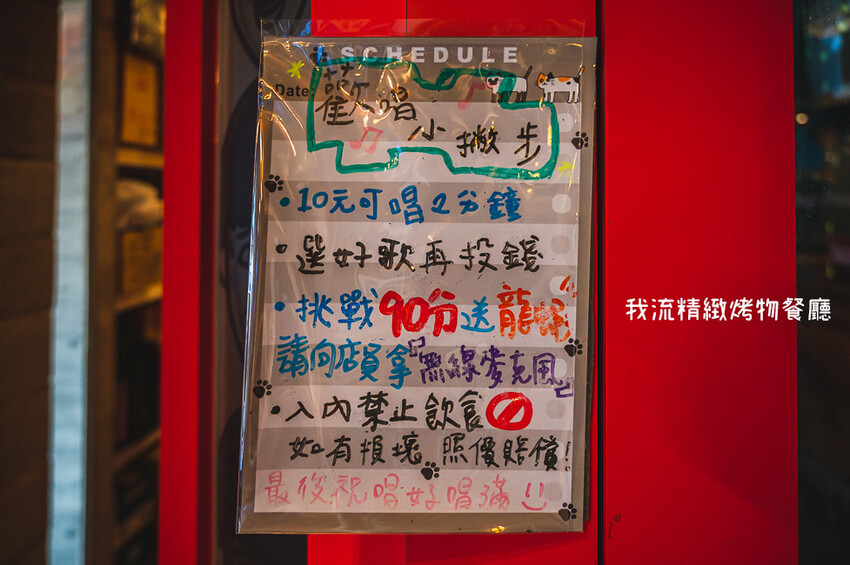 SCHEDULE
Date:
歡唱
小撇步
•10元可唱2分鐘
•選好歌再投錢
•挑戰90分送龍蝦
請向店員拿『無線麥克風』
•入內禁止飲食
如有損壞,照價賠償!
最後祝唱好唱滿
我流精緻烤物餐廳